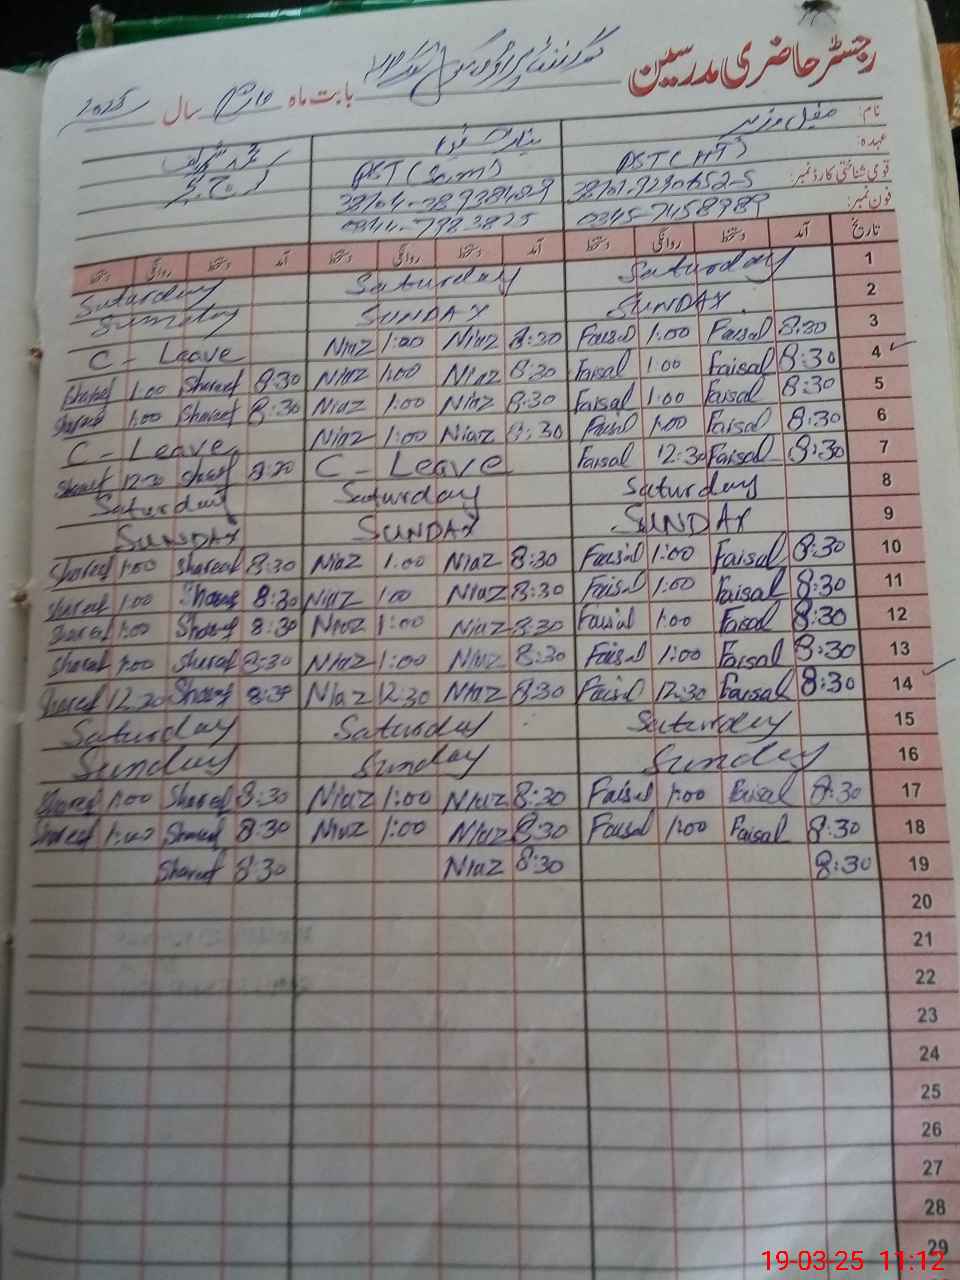 رجسٹر حاضری مدرسین گورنمنٹ پرائمری سکول بابت ماہ مارچ سال 2025
نام:
عہدہ: PST (HT) PST
قومی شناختی کارڈ نمبر:
فون نمبر: 0345-7458989 0344-7983825
تاریخ آمد دستخط روانگی دستخط آمد دستخط روانگی دستخط آمد دستخط روانگی دستخط
1 Saturday Saturday Saturday
2 SUNDAY SUNDAY Sunday
3 8:30 Faisal 1:00 Faisal 8:30 Niaz 1:00 Niaz C - Leave
4 8:30 Faisal 1:00 Faisal 8:30 Niaz 1:00 Niaz 8:30 Shareef 1:00 Shareef
5 8:30 Faisal 1:00 Faisal 8:30 Niaz 1:00 Niaz 8:30 Shareef 1:00 Shareef
6 8:30 Faisal 1:00 Faisal 8:30 Niaz 1:00 Niaz C - Leave
7 8:30 Faisal 12:30 Faisal C - Leave 8:30 Shareef 12:30 Shareef
8 Saturday Saturday Saturday
9 SUNDAY SUNDAY SUNDAY
10 8:30 Faisal 1:00 Faisal 8:30 Niaz 1:00 Niaz 8:30 Shareef 1:00 Shareef
11 8:30 Faisal 1:00 Faisal 8:30 Niaz 1:00 Niaz 8:30 Shareef 1:00 Shareef
12 8:30 Faisal 1:00 Faisal 8:30 Niaz 1:00 Niaz 8:30 Shareef 1:00 Shareef
13 8:30 Faisal 1:00 Faisal 8:30 Niaz 1:00 Niaz 8:30 Shareef 1:00 Shareef
14 8:30 Faisal 12:30 Faisal 8:30 Niaz 12:30 Niaz 8:30 Shareef 12:30 Shareef
15 Saturday Saturday Saturday
16 Sunday Sunday Sunday
17 8:30 Faisal 1:00 Faisal 8:30 Niaz 1:00 Niaz 8:30 Shareef 1:00 Shareef
18 8:30 Faisal 1:00 Faisal 8:30 Niaz 1:00 Niaz 8:30 Shareef 1:00 Shareef
19 8:30 8:30 Niaz 8:30 Shareef
20
21
22
23
24
25
26
27
28
29
19-03-25 11:12